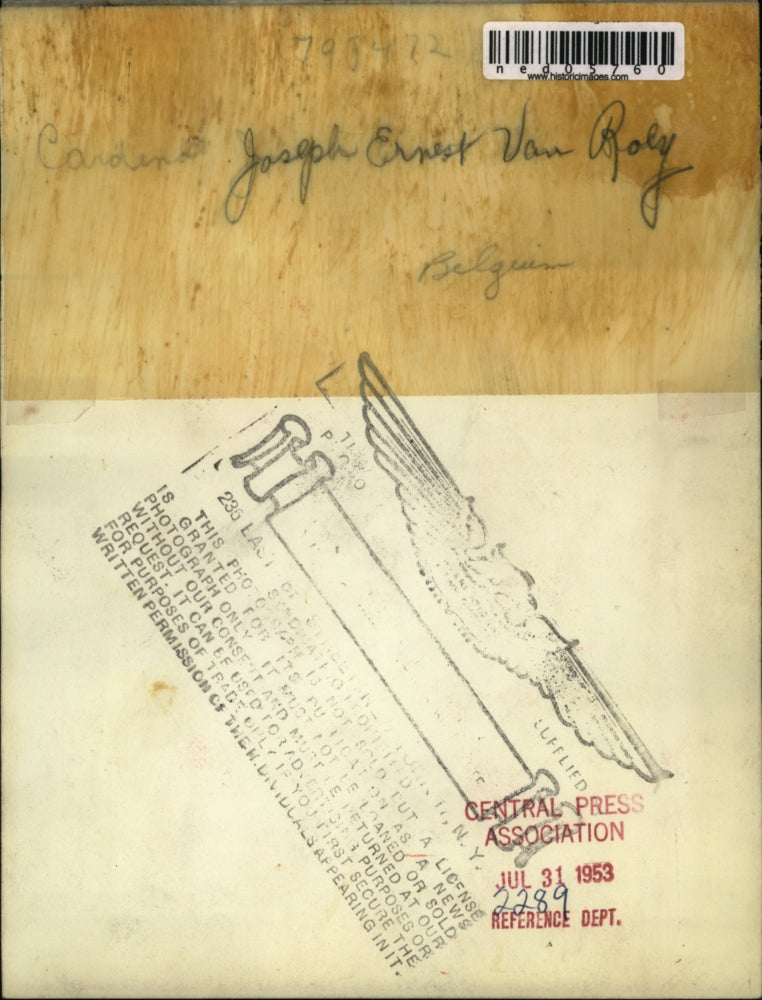 ned05760
www.historicimages.com
Cardinal Joseph Ernest Van Roey
Belgium
THIS PHOTOGRAPH IS NOT SOLD BUT A LICENSE
IS GRANTED FOR ITS PUBLICATION AS A NEWS
PHOTOGRAPH ONLY. IT MUST NOT BE LOANED OR SOLD
WITHOUT OUR CONSENT AND MUST BE RETURNED AT OUR
REQUEST. IT CAN BE USED FOR ADVERTISING PURPOSES OR
FOR PURPOSES OF TRADE ONLY IF YOU FIRST SECURE THE
WRITTEN PERMISSION OF THE INDIVIDUALS APPEARING IN IT.
SUPPLIED
CENTRAL PRESS
ASSOCIATION
JUL 31 1953
2289
REFERENCE DEPT.